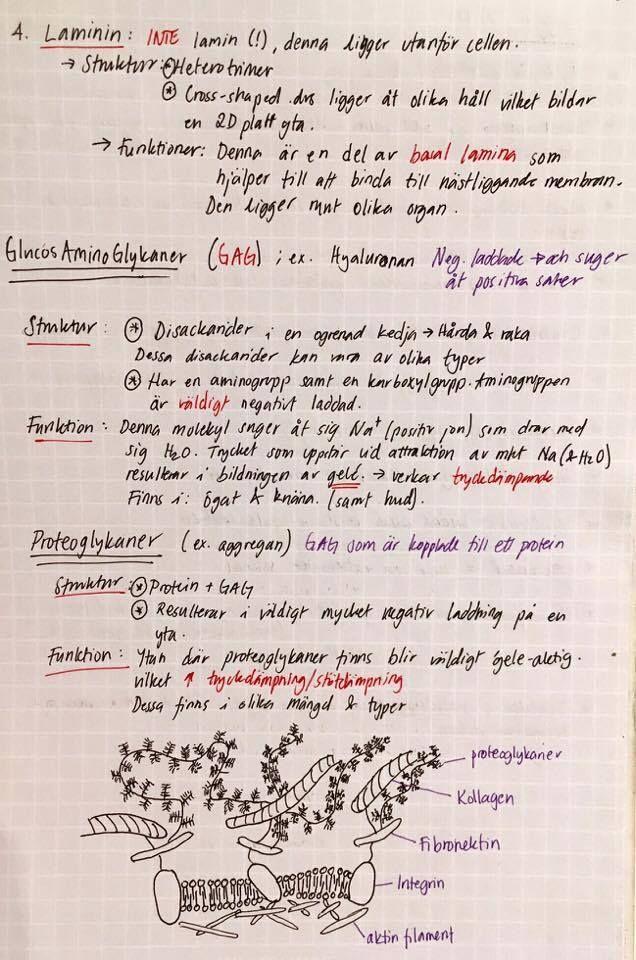 4. Laminin: INTE lamin (!), denna ligger utanför cellen.
→ Struktur: * Heterotrimer
* Cross-shaped. dvs ligger åt olika håll vilket bildar
en 2D platt yta.
→ Funktioner: Denna är en del av basal lamina som
hjälper till att binda till nästliggande membran.
Den ligger runt olika organ.
GlucosAminoGlykaner (GAG) ; ex. Hyaluronan Neg. laddade → och suger
åt positiva saker
Struktur: * Disackarider i en ogrenad kedja → Hårda & raka
Dessa disackarider kan vara av olika typer
* Har en aminogrupp samt en karboxylgrupp. Aminogruppen
är väldigt negativt laddad.
Funktion: Denna molekyl suger åt sig Na+ (positiv jon) som drar med
sig H2O. Trycket som uppstår vid attraktion av mkt Na (& H2O)
resulterar i bildningen av gelé. → verkar tryckdämpande
Finns i: ögat & knäna. (samt hud).
Proteoglykaner (ex. aggregan) GAG som är kopplade till ett protein
Struktur: * Protein + GAG
* Resulterar i väldigt mycket negativ laddning på en
yta.
Funktion: Ytan där proteoglykaner finns blir väldigt gele-aktig.
vilket ↑ tryckdämpning/stötdämpning
Dessa finns i olika mängd & typer
proteoglykaner
Kollagen
Fibronektin
Integrin
aktin filament